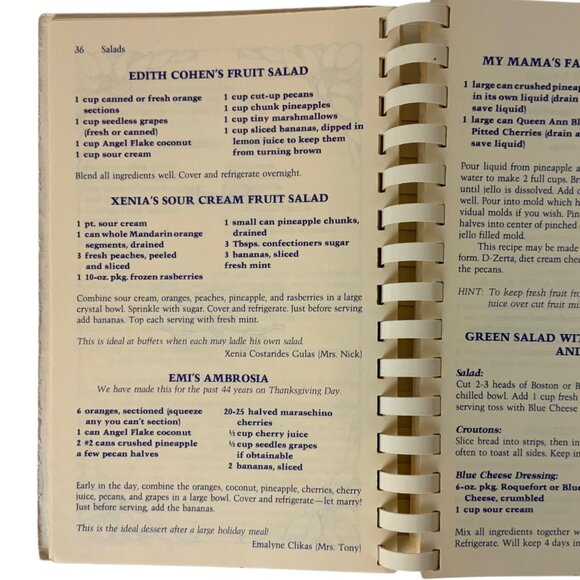 36 Salads
EDITH COHEN'S FRUIT SALAD
1 cup canned or fresh orange
sections
1 cup seedless grapes
(fresh or canned)
1 cup Angel Flake coconut
1 cup sour cream
1 cup cut-up pecans
1 cup chunk pineapples
1 cup tiny marshmallows
1 cup sliced bananas, dipped in
lemon juice to keep them
from turning brown
Blend all ingredients well. Cover and refrigerate overnight.
XENIA'S SOUR CREAM FRUIT SALAD
1 pt. sour cream
1 can whole Mandarin orange
segments, drained
3 fresh peaches, peeled
and sliced
1 10-oz. pkg. frozen rasberries
1 small can pineapple chunks,
drained
3 Tbsps. confectioners sugar
3 bananas, sliced
fresh mint
Combine sour cream, oranges, peaches, pineapple, and rasberries in a large
crystal bowl. Sprinkle with sugar. Cover and refrigerate. Just before serving
add bananas. Top each serving with fresh mint.
This is ideal at buffets when each may ladle his own salad.
Xenia Costarides Gulas (Mrs. Nick)
EMI'S AMBROSIA
We have made this for the past 44 years on Thanksgiving Day.
6 oranges, sectioned (squeeze
any you can't section)
1 can Angel Flake coconut
2 #2 cans crushed pineapple
a few pecan halves
20-25 halved maraschino
cherries
½ cup cherry juice
½ cup seedless grapes
if obtainable
2 bananas, sliced
Early in the day, combine the oranges, coconut, pineapple, cherries, cherry
juice, pecans, and grapes in a large bowl. Cover and refrigerate—let marry!
Just before serving, add the bananas.
This is the ideal dessert after a large holiday meal!
Emalyne Clikas (Mrs. Tony)
MY MAMA'S
1 large can crushed
in its own liquid (drain
save liquid)
1 large can Queen Ann
Pitted Cherries (drain
save liquid)
Pour liquid from pineapple
water to make 2 full cups.
until jello is dissolved. Add
well. Pour into mold which
vidual molds if you wish.
halves into center of pinched
jello filled mold.
This recipe may be made
form. D-Zerta, diet cream
the pecans.
HINT: To keep fresh fruit
juice over cut fruit
GREEN SALAD
AND
Salad:
Cut 2-3 heads of Boston or
chilled bowl. Add 1 cup fresh
serving toss with Blue Cheese
Croutons:
Slice bread into strips, then
often to toast all sides. Keep in
Blue Cheese Dressing:
6-oz. pkg. Roquefort or Blue
Cheese, crumbled
1 cup sour cream
Mix all ingredients together
Refrigerate. Will keep 4 days